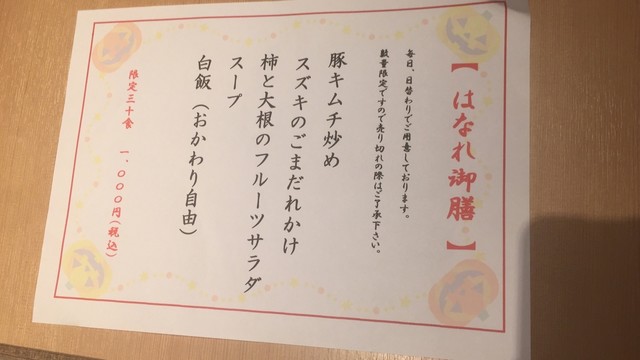 【 はなれ御膳 】
毎日、日替わりでご用意しております。
数量限定ですので売り切れの際はご了承下さい。
豚キムチ炒め
スズキのごまだれかけ
柿と大根のフルーツサラダ
スープ
白飯（おかわり自由）
限定三十食　一、〇〇〇円（税込）